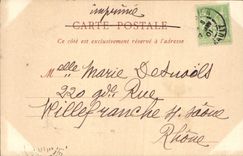 imprimé
CARTE POSTALE
Ce côté est exclusivement réservé à l'adresse
Melle Marie
220 gde Rue
Villefranche s/ Saône
Rhône